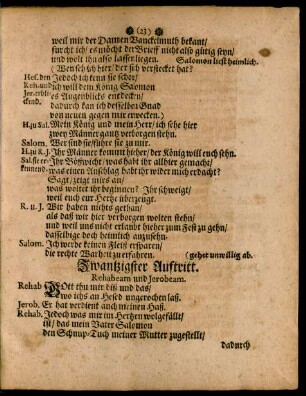 (23)
weil mir der Damen Wanckelmuth bekant/
fürcht ich/ es möcht der Brieff nicht also gütig seyn/
und wolt ihn also lasser liegen. Salomon liest heimlich.
Wen seh ich hier/ der sich versteckt hat?
Hes. den Jedoch ich kenn sie sicher/
Reh. und ich will dem König Salomon
Jer. erbli- es Augenblicks entdecken/
ckend. dadurch kan ich desselben Gnad
von neuen gegen mir erwecken.)
H. zu Sal. Mein König und mein Herr/ ich sehe hier
zwey Männer gantz verborgen stehn.
Salom. Wer sind sie? führe sie zu mir.
H. zu R. J. Ihr Männer kommt hieher/ der König will euch sehn.
Sal. sie er- Ihr Bößwicht/ was habt ihr allhier gemacht/
kennend. was einen Anschlag habt ihr wider mich erdacht?
Sagt/ zeigt mirs an/
was weiter ihr beginnen? Ihr schweigt/
weil euch eur Hertze überzeugt.
R. u. J. Wir haben nichts gethan/
als daß wir hier verborgen wolten stehn/
und weil uns nicht erlaubt hieher zum Fest zu gehn/
dasselbige doch heimlich anzusehn.
Salom. Ich werde keinen Fleiß ersparen/
die rechte Warheit zu erfahren. (gehet unwillig ab.
Zwantzigster Auftritt.
Rehabeam und Jerobeam.
Rehab GOtt thu mir diß und das/
wo ichs an Hesed ungerochen laß.
Jerob. Er hat verdient auch meinen Haß.
Rehab. Jedoch was mir im Hertzen wolgefällt/
ist/ das mein Vater Salomon
den Schnup-Tuch meiner Mutter zugestellt/
dadurch